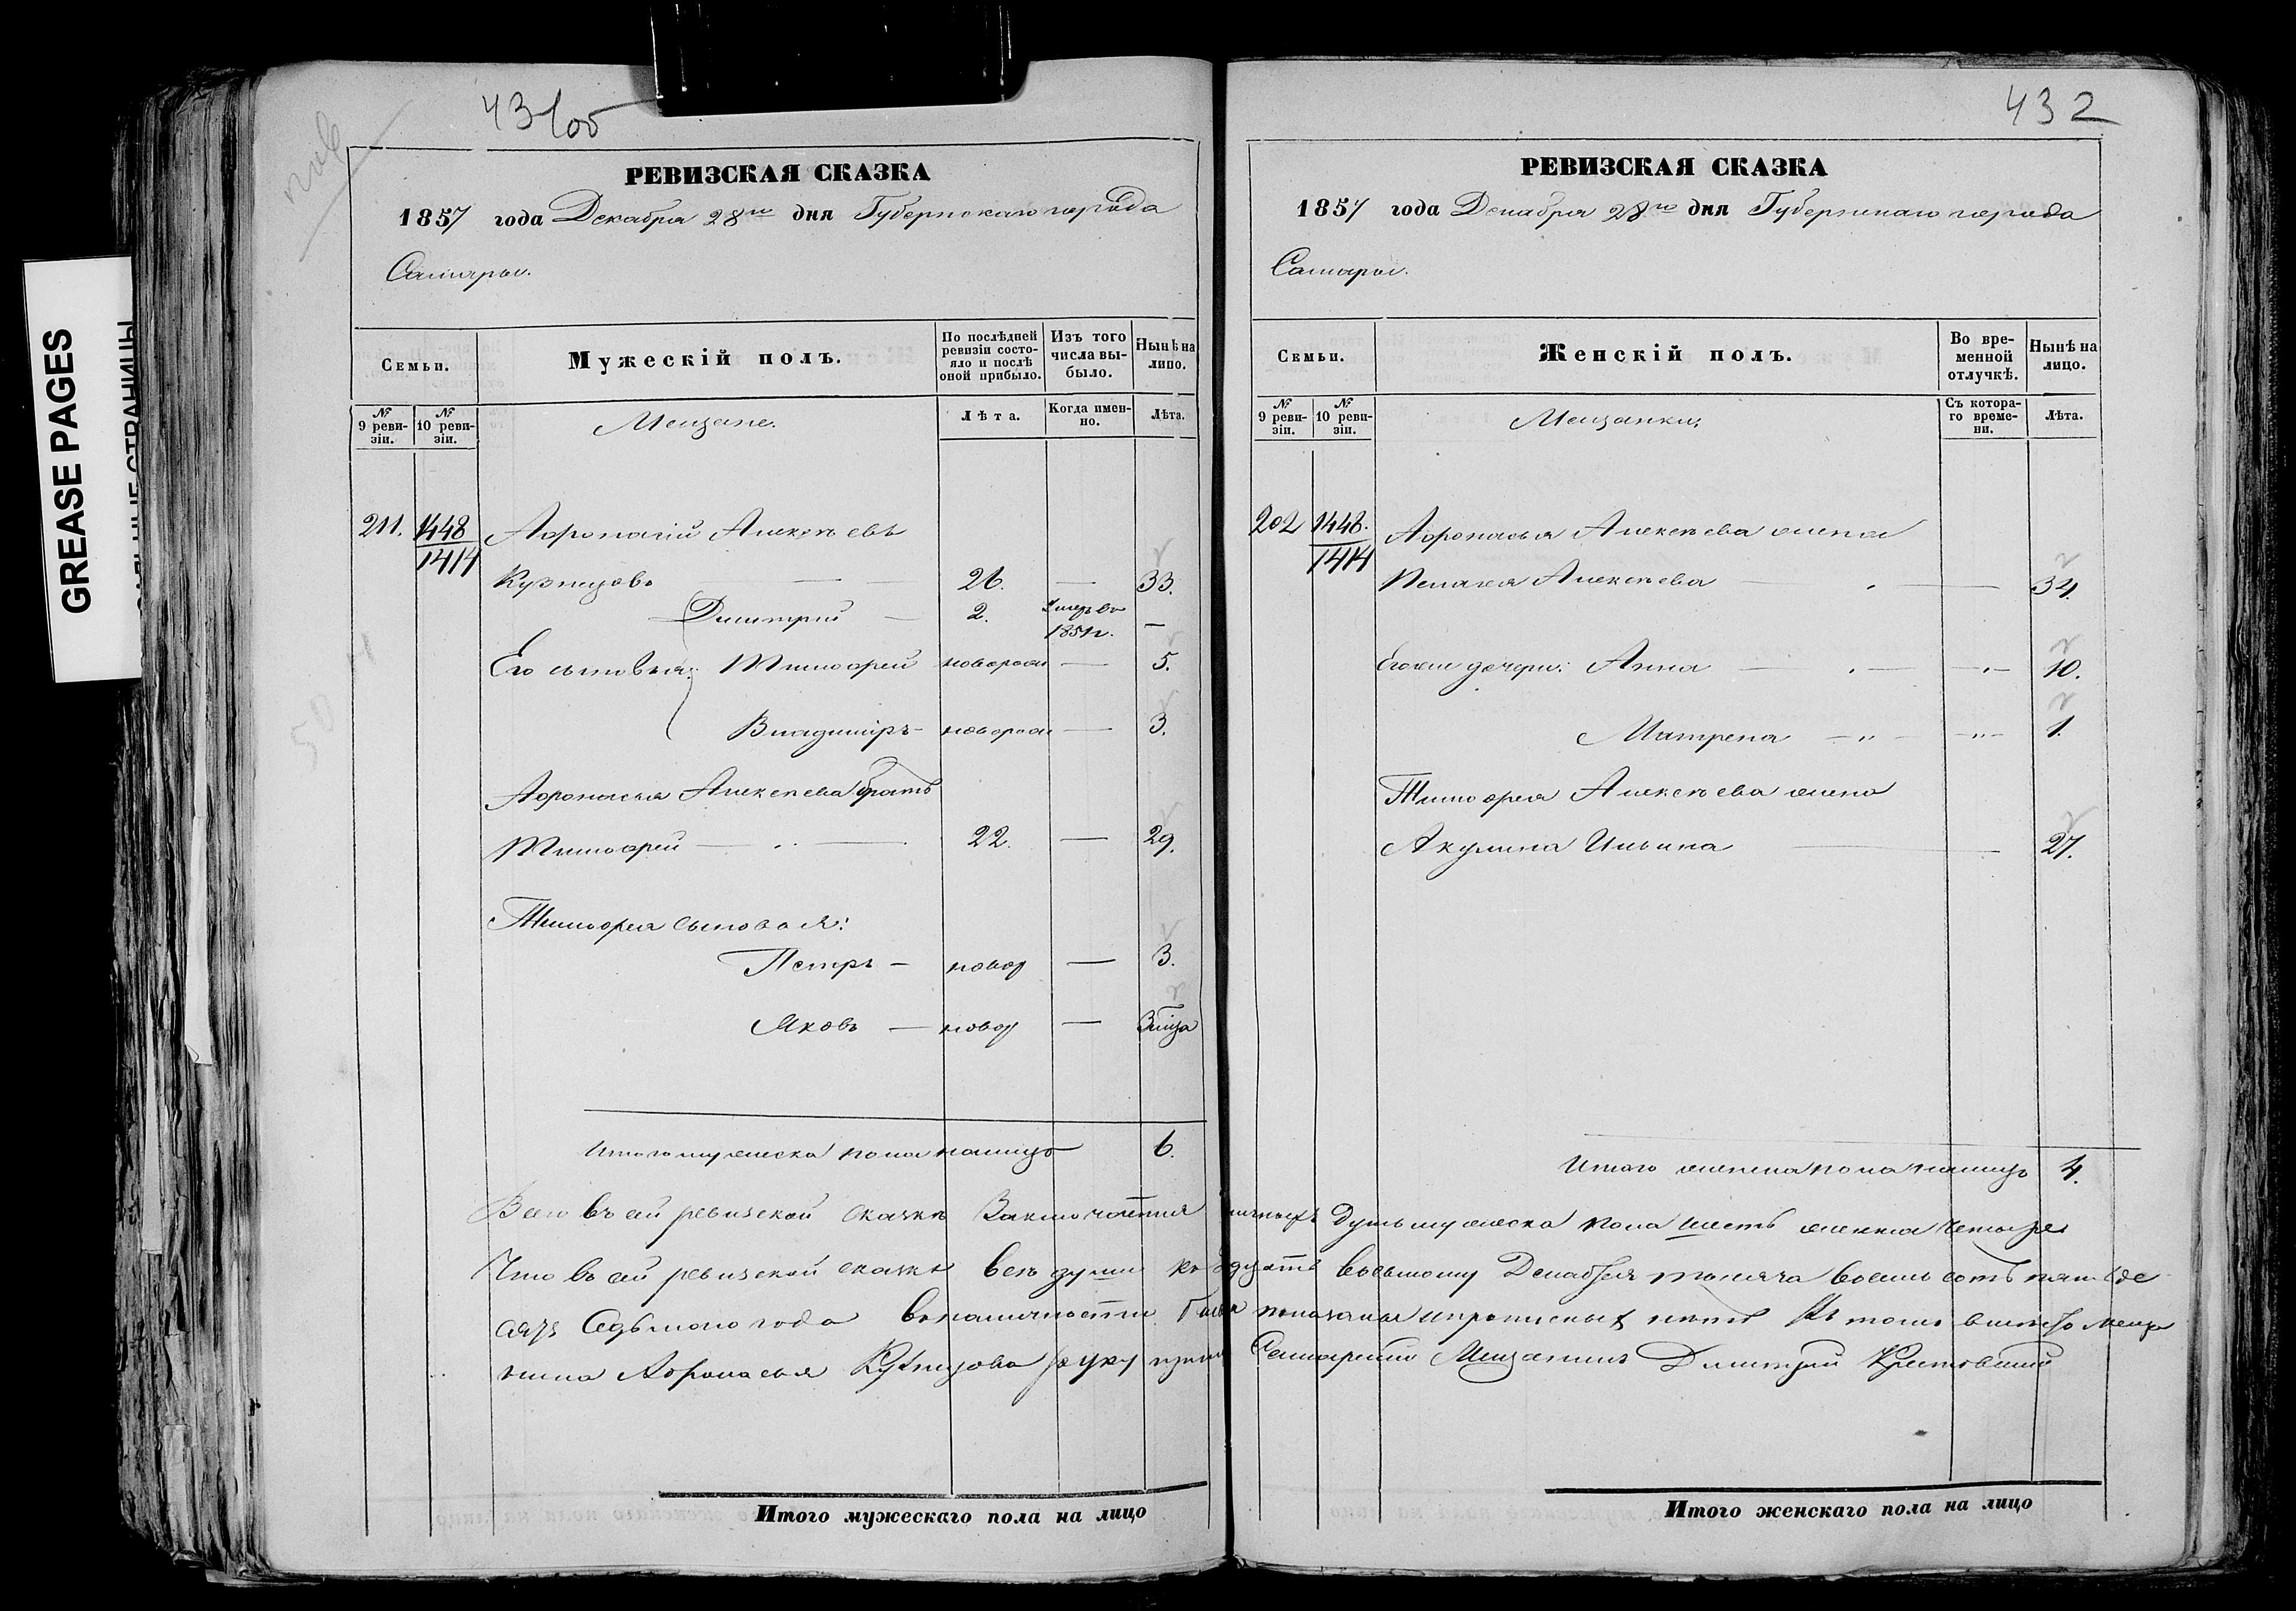 431об
РЕВИЗСКАЯ СКАЗКА
1857 года Декабря 28го дня Губернскаго города
Самары.
Семьи.
Мужескій полъ.
По послѣдней ревизіи состояло и послѣ оной прибыло.
Изъ того числа выбыло.
Нынѣ на лицо.
№ 9 ревизіи.
№ 10 ревизіи.
Мещане.
Лѣта.
Когда именно.
Лѣта.
211. 1448 Афонасій Алексѣевъ
1414
Кузнецовъ — 26. — 33.
Дмитрій — 2. Умеръ въ 1851г. —
Его сыновья: Тимофей новорож — 5.
Владиміръ - новорож — 3.
Афонасья Алексѣева братъ
Тимофей — 22. — 29.
Тимофея сыновья:
Петръ — новор — 3.
Яковъ — новор — 3 м͠ца
Итого мужеска пола налицо 6.
432
РЕВИЗСКАЯ СКАЗКА
1857 года Декабря 28го дня Губернскаго города
Самары.
Семьи.
Женскій полъ.
Во временной отлучкѣ.
Нынѣ на лицо.
№ 9 ревизіи.
№ 10 ревизіи.
Мещанки.
Съ котораго времени.
Лѣта.
202 1448. Афонасья Алексѣева жена
1414
Пелагея Алексѣева — — 34.
Его же дочери: Анна — — 10.
Матрена — „ — — „ — 1.
Тимофея Алексѣева жена
Акулина Ильина — 27.
Итого женска пола налицо 4.
Всего въ сей ревизской сказкѣ заключается наличныхъ душъ мужеска пола шесть женска четыре
Что въ сей ревизской сказкѣ всѣ души къ двадцать восьмому Декабря тысяча восемь сотъ пятьде
сятъ седьмого года въ наличности были показаны и прописныхъ нѣтъ Въ томъ вмѣсто меща
нина Афонасья Кузнецова руку прил Самарскій Мещанинъ Дмитрій
Итого мужескаго пола на лицо
Итого женскаго пола на лицо
GREASE PAGES